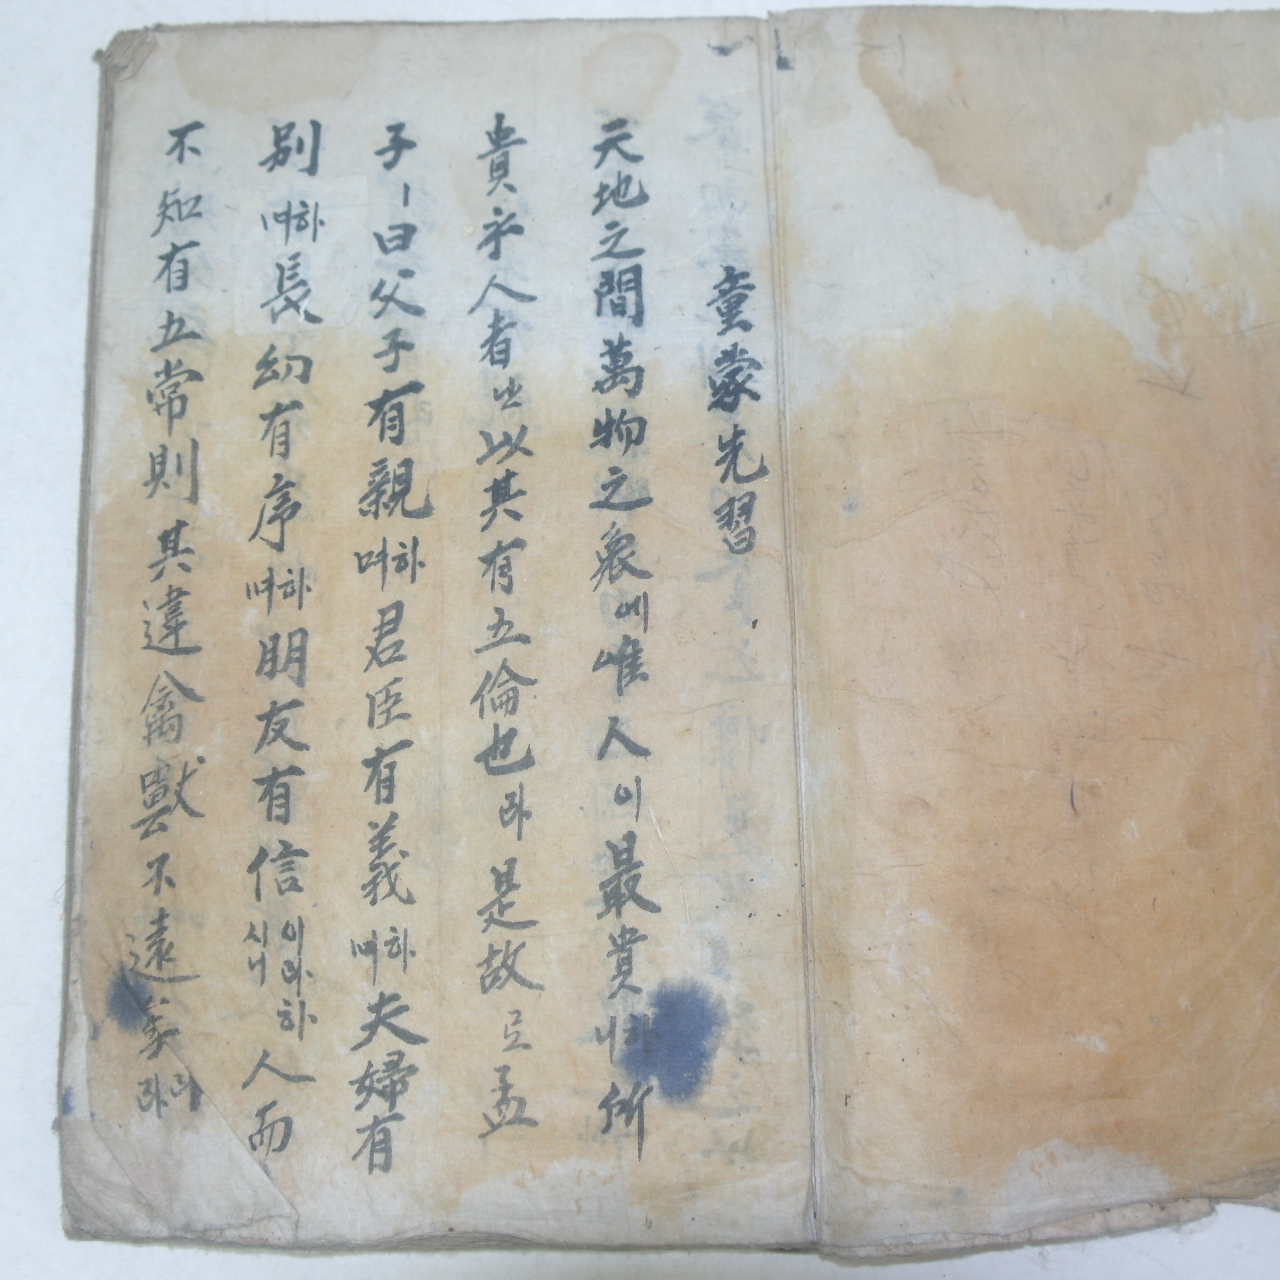 童蒙先習
天地之間萬物之衆에唯人이最貴하니所
貴乎人者난以其有五倫也라是故로孟
子ㅣ曰父子有親하며君臣有義하며夫婦有
別하며長幼有序하며朋友有信이라하시니人而
不知有五常則其違禽獸不遠矣리라